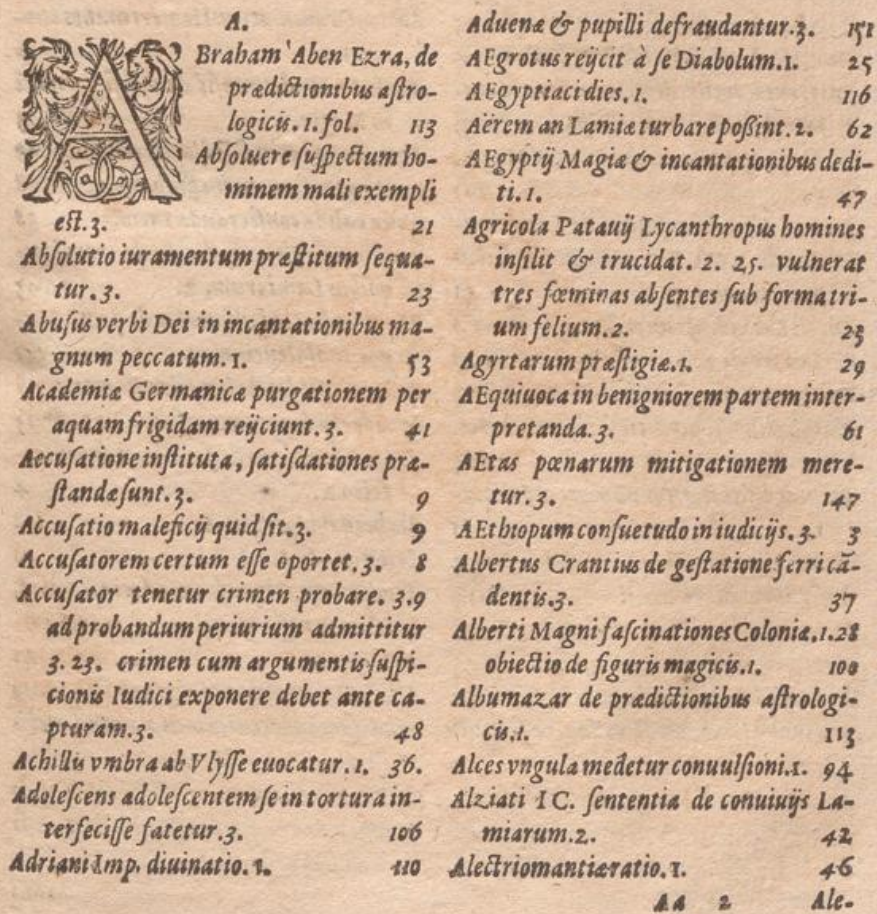 A.
ABraham Aben Ezra, de
prædictionibus astro-
logicis. 1. fol. 113
Absoluere suspectum ho-
minem mali exempli
est. 3. 21
Absolutio iuramentum præstitum sequa-
tur. 3. 23
Abusus verbi Dei in incantationibus ma-
gnum peccatum. 1. 53
Academiæ Germanicæ purgationem per
aquam frigidam reijciunt. 3. 41
Accusatione instituta, satisdationes præ-
standæ sunt. 3. 9
Accusatio maleficij quid sit. 3. 9
Accusatorem certum esse oportet. 3. 8
Accusator tenetur crimen probare. 3. 9
ad probandum periurium admittitur
3. 23. crimen cum argumentis suspi-
cionis Iudici exponere debet ante ca-
pturam. 3. 48
Achillis vmbra ab Vlysse euocatur. 1. 36.
Adolescens adolescentem se in tortura in-
terfecisse fatetur. 3. 106
Adriani Imp. diuinatio. 1. 110
Aduenæ & pupilli defraudantur. 3. 151
AEgrotus reijcit à se Diabolum. 1. 25
AEgyptiaci dies. 1. 116
Aërem an Lamiæ turbare poßint. 2. 62
AEgyptij Magiæ & incantationibus dedi-
ti. 1. 47
Agricola Patauij Lycanthropus homines
insilit & trucidat. 2. 25. vulnerat
tres fœminas absentes sub forma tri-
um felium. 2. 25
Agyrtarum præstigiæ. 1. 29
AEquiuoca in benigniorem partem inter-
pretanda. 3. 61
AEtas pœnarum mitigationem mere-
tur. 3. 147
AEthiopum consuetudo in iudicijs. 3. 3
Albertus Crantius de gestatione ferri cã-
dentis. 3. 37
Alberti Magni fascinationes Coloniæ. 1. 28
obiectio de figuris magicis. 1. 100
Albumazar de prædictionibus astrologi-
cis. 1. 113
Alces vngula medetur conuulsioni. 1. 94
Alziati IC. sententia de conuiuijs La-
miarum. 2. 42
Alectriomantiæ ratio. 1. 46
Aa 2 Ale-